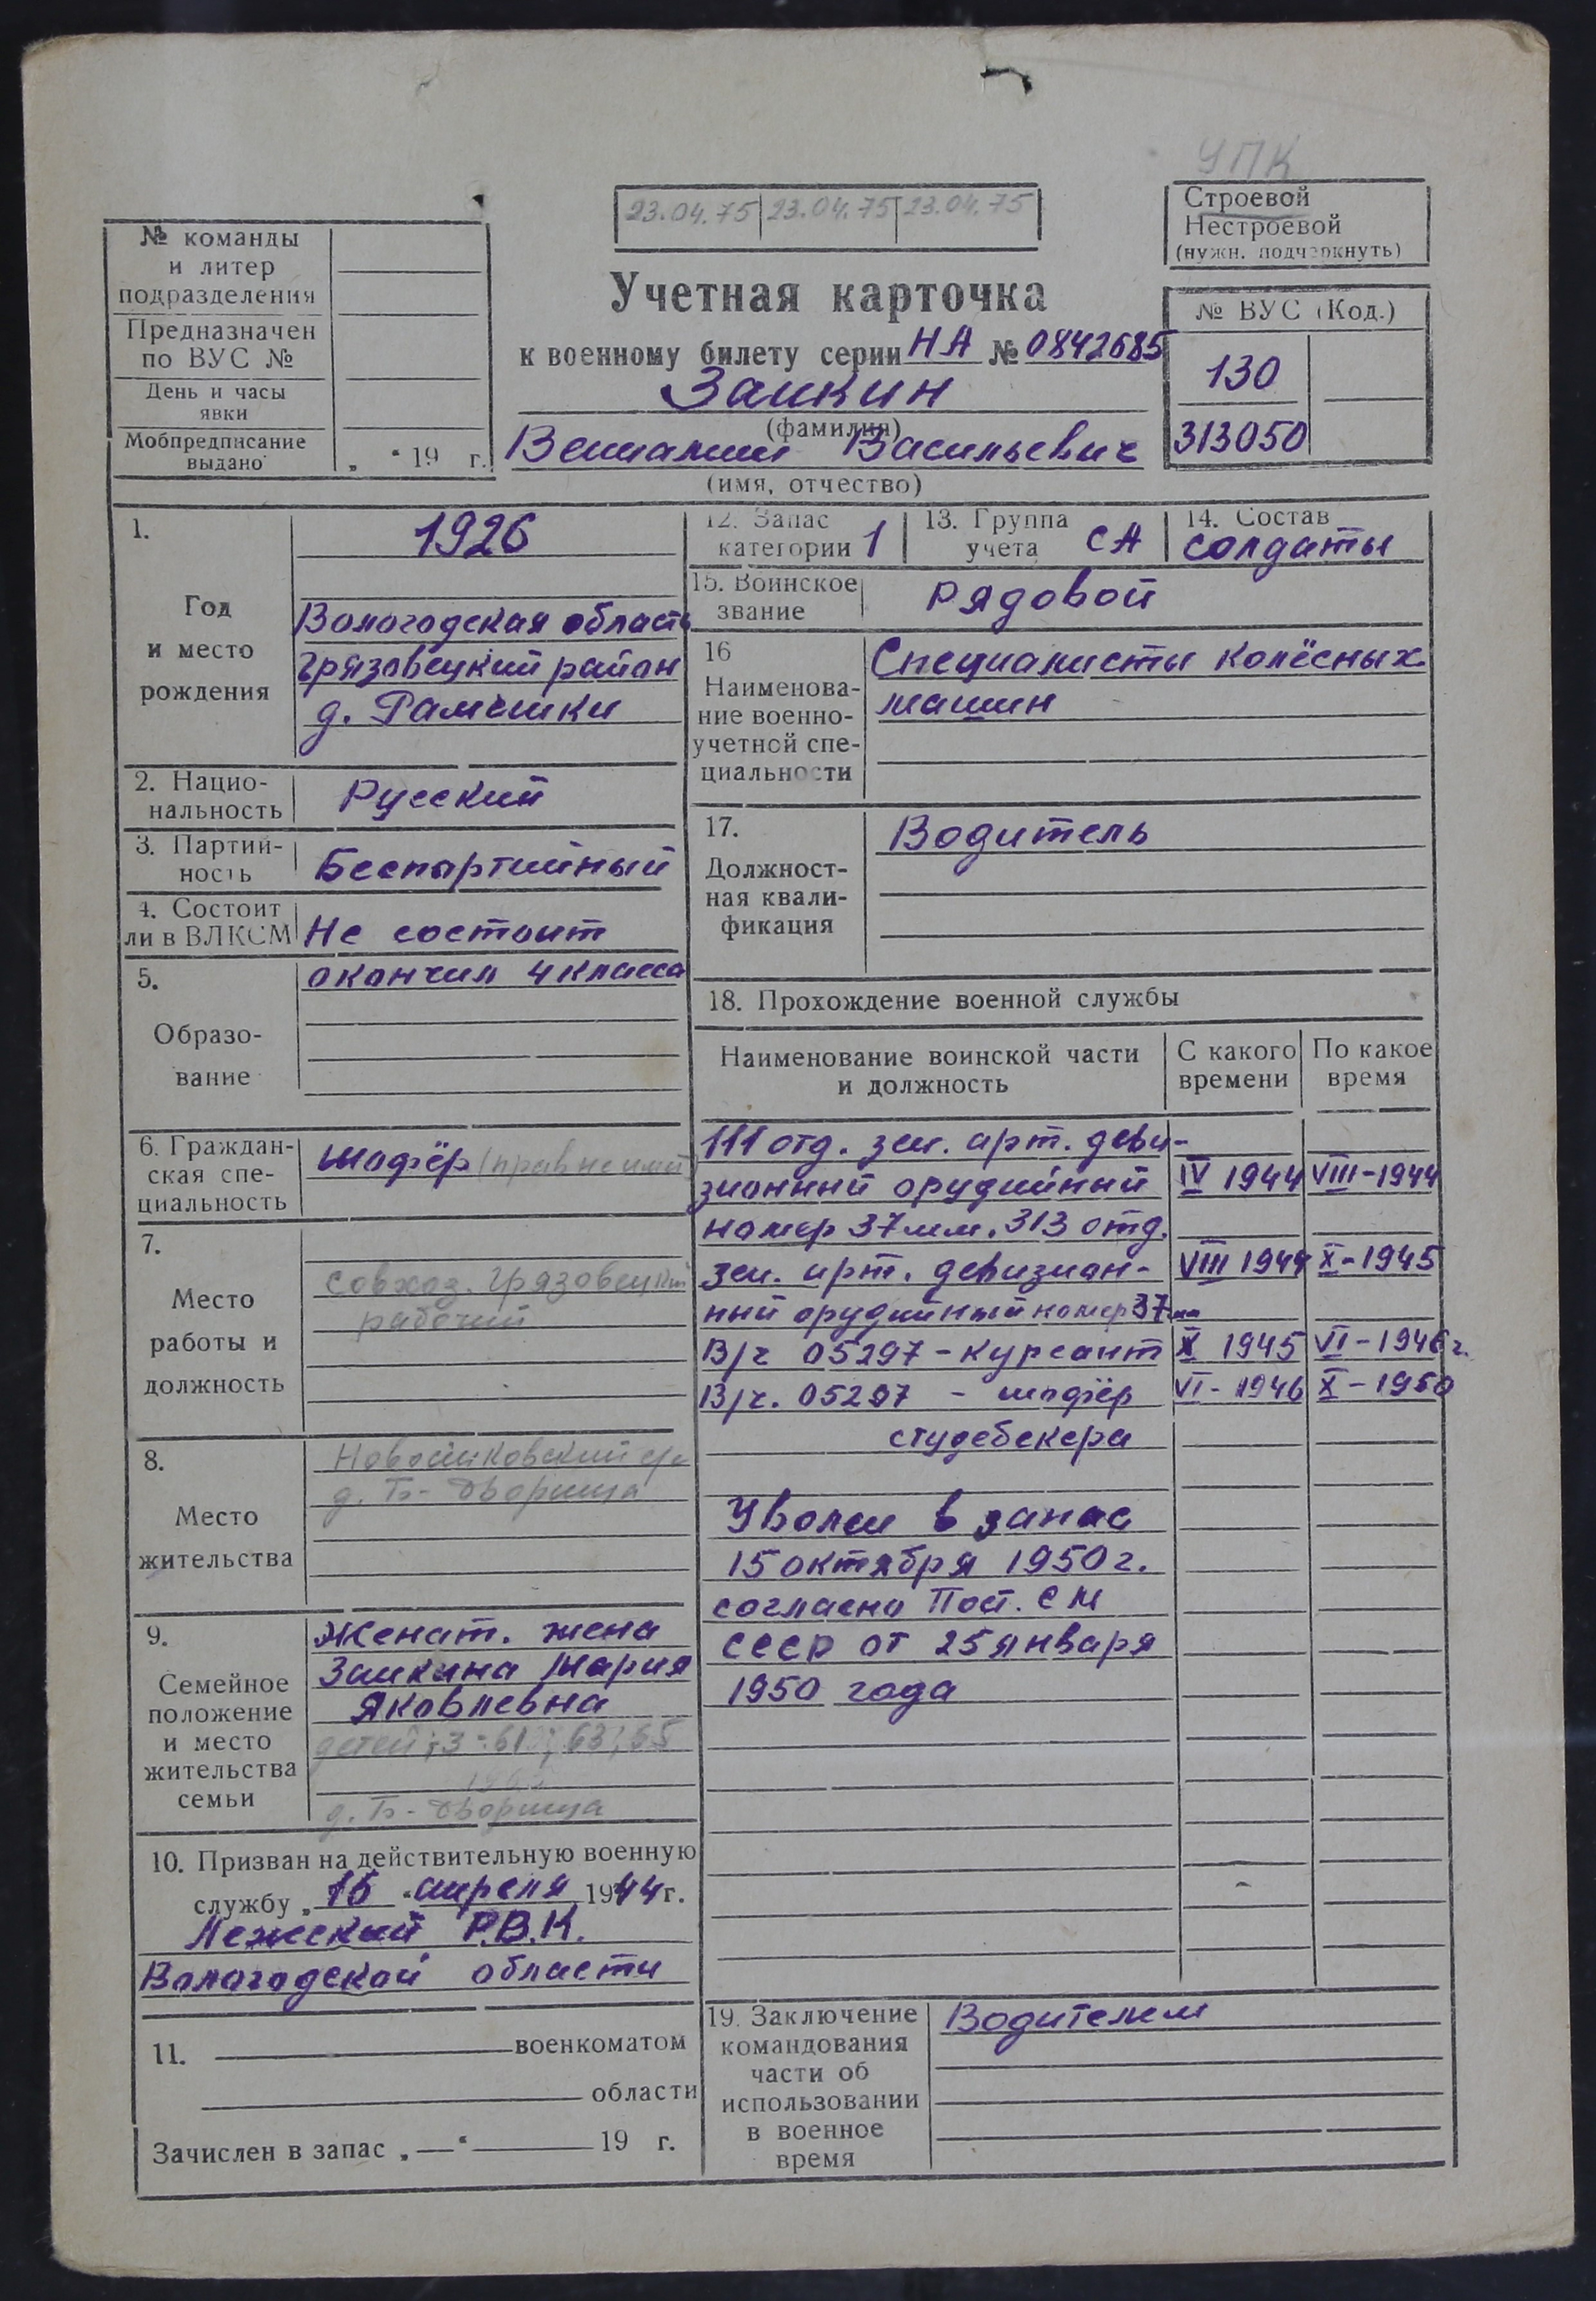 УПК
23.04.75 23.04.75 23.04.75
Строевой
Нестроевой
(нужн. подчеркнуть)
№ команды
и литер
подразделения
Предназначен
по ВУС №
День и часы
явки
Мобпредписание
выдано „ “ 19 г.
Учетная карточка
к военному билету серии НА № 0842685
Заикин
(фамилия)
Вениамин Васильевич
(имя, отчество)
№ ВУС (Код.)
130
313050
1. 1926
Год
и место
рождения
Вологодская область
Грязовецкий район
д. Рамешки
2. Нацио-
нальность Русский
3. Партий-
ность Беспартийный
4. Состоит
ли в ВЛКСМ Не состоит
5. окончил 4 класса
Образо-
вание
6. Граждан-
ская спе-
циальность
Шофёр (прав не имеет
7.
Место
работы и
должность
совхоз. Грязовецкий
рабочий
8.
Место
жительства
д. Б-Дворища
9.
Семейное
положение
и место
жительства
семьи
Женат. жена
Заикина Мария
Яковлевна
детей: 3-61; 63; 65
д. Б-Дворища
10. Призван на действительную военную
службу „15“ апреля 1944 г.
Лежский Р.В.К.
Вологодской области
11. военкоматом
области
Зачислен в запас „—“ 19 г.
12. Запас
категории 1
13. Группа
учета СА
14. Состав
солдаты
15. Воинское
звание Рядовой
16
Наименова-
ние военно-
учетной спе-
циальности
Специалисты колёсных
машин
17.
Должност-
ная квали-
фикация
Водитель
18. Прохождение военной службы
Наименование воинской части
и должность
С какого
времени
По какое
время
111 отд. зен. арт. диви-
зионный орудийный IV 1944 VIII-1944
номер 37 мм. 313 отд.
зен. арт. дивизион- VIII 1944 X-1945
ный орудийный номер 37 мм
В/ч 05297 - курсант X 1945 VI-1946 г.
В/ч. 05297 - шофёр VI-1946 X-1950
студебекера
Уволен в запас
15 октября 1950 г.
согласно Пост. СМ
СССР от 25 января
1950 года
19. Заключение
командования
части об
использовании
в военное
время
Водителем